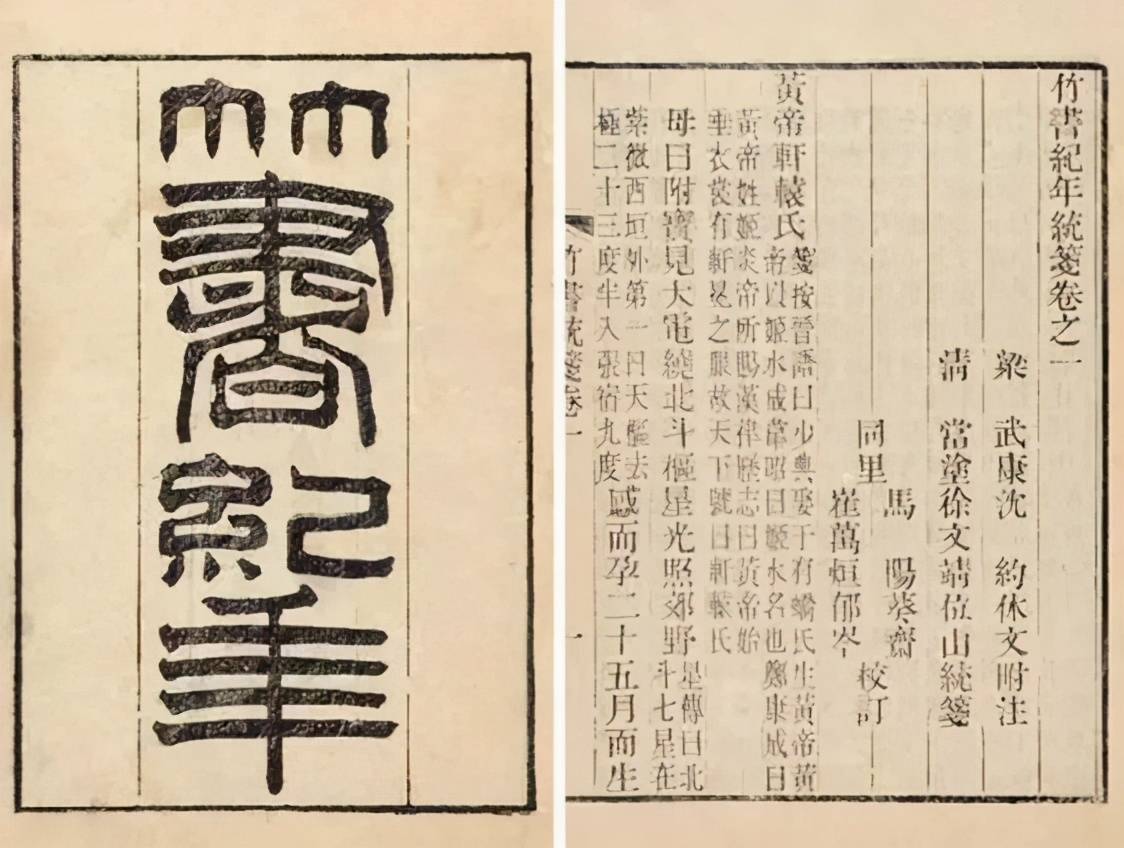 竹書紀年
竹書紀年統箋卷之一
梁 武康沈 約休文附注
清 當塗徐文靖位山統箋
同里
馬 陽葵齋
崔萬烜郁岑
校訂
黃帝軒轅氏
箋按晉語曰少典娶于有蟜氏生黃帝黃
帝以姬水成韋昭曰姬水名也鄭康成曰
黃帝姓姬炎帝所賜漢律歷志曰黃帝始
垂衣裳有軒冕之服故天下號曰軒轅氏
母曰附寶見大電繞北斗樞星光照郊野
星傳曰北
斗七星在
紫微西垣外第一曰天樞去
極二十三度半入張宿九度
感而孕二十五月而生
竹書統箋卷一
一